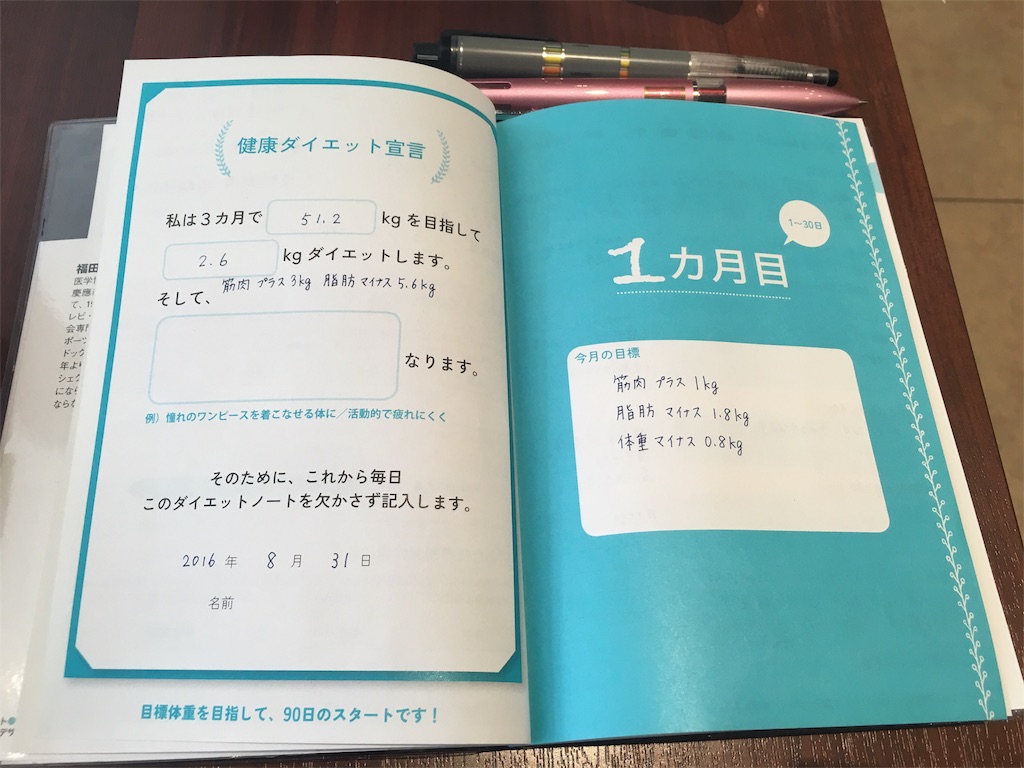 健康ダイエット宣言
私は3カ月で 51.2 kgを目指して
2.6 kgダイエットします。
そして、筋肉 プラス 3kg 脂肪 マイナス 5.6kg
なります。
例）憧れのワンピースを着こなせる体に／活動的で疲れにくく
そのために、これから毎日
このダイエットノートを欠かさず記入します。
2016 年 8 月 31 日
名前
目標体重を目指して、90日のスタートです！
1〜30日
1カ月目
今月の目標
筋肉 プラス 1kg
脂肪 マイナス 1.8kg
体重 マイナス 0.8kg
福田
医学
慶應
て、19
レビ・
会専門
ポーツ
ドック
年よ
シェイ
にな
ならな